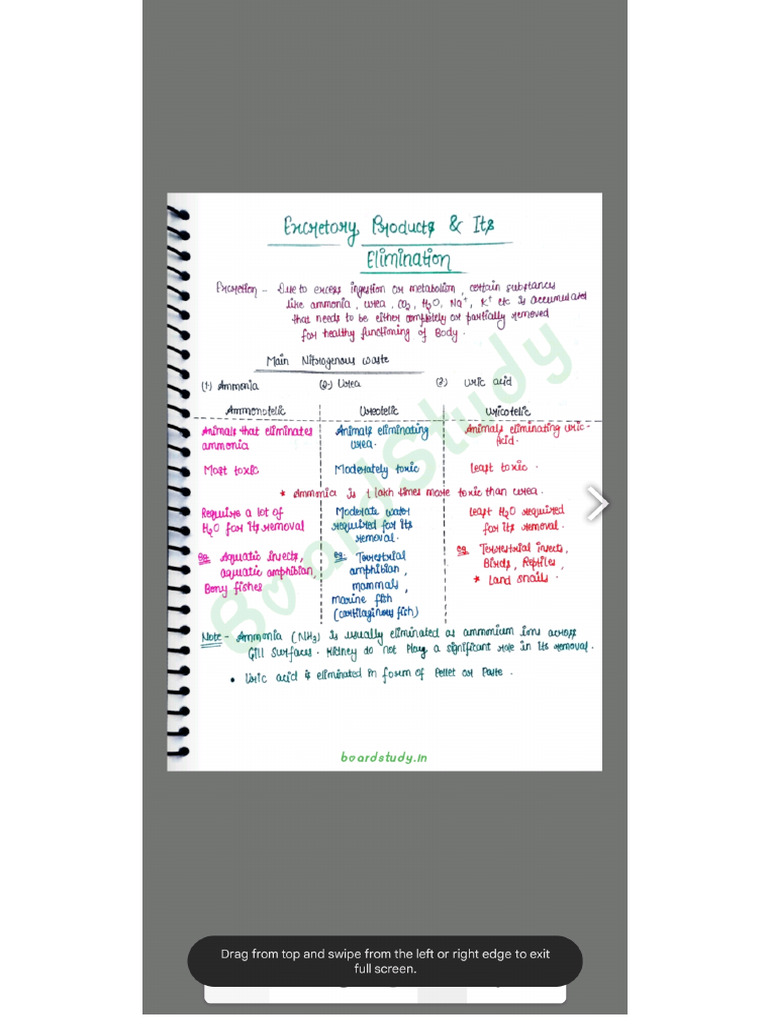 Excretory Products & Its
Elimination
Excretion - Due to excess ingestion or metabolism, certain substances
like ammonia, urea, CO2, H2O, Na+, K+ etc is accumulated
that needs to be either completely or partially removed
for healthy functioning of Body.
Main Nitrogenous waste
(1) Ammonia (2) Urea (3) Uric acid
Ammonotelic Ureotelic Uricotelic
Animals that eliminates ammonia
Animals eliminating urea.
Animals eliminating uric-acid.
Most toxic Moderately toxic Least toxic.
* Ammonia is 1 lakh times more toxic than urea.
Requires a lot of
H2O for its removal
Moderate water
required for its
removal.
least H2O required
for its removal.
eg Aquatic insects,
aquatic amphibian,
Bony fishes
eg: Terrestrial
amphibian,
mammals,
marine fish
(cartilaginous fish)
eg. Terrestrial insects,
Birds, Reptiles,
* Land snails.
Note - Ammonia (NH3) is usually eliminated as ammonium ions across
Gill Surfaces. Kidney do not Play a significant role in its removal.
• Uric acid is eliminated in form of Pellet or Paste.
BoardStudy
boardstudy.in
Drag from top and swipe from the left or right edge to exit
full screen.